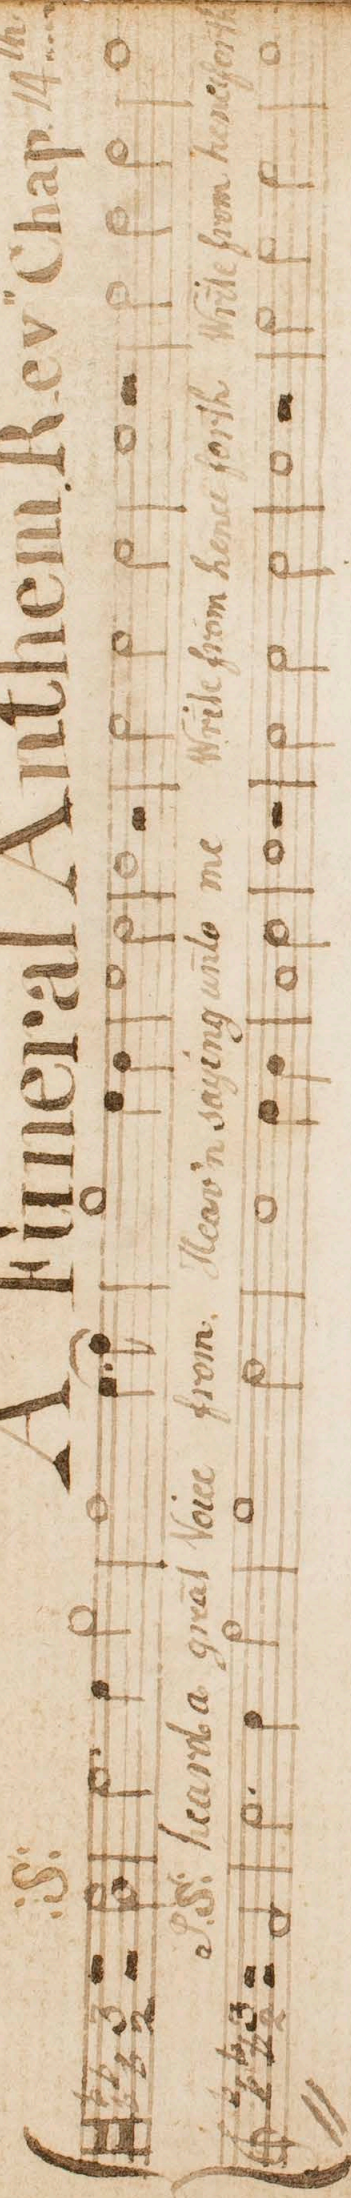 A Funeral Anthem. Rev" Chap. 14th.
:S:
3
2
I :S: heard a great Voice from. Heav'n saying unto me Write from hence forth Write from henceforth
3
2